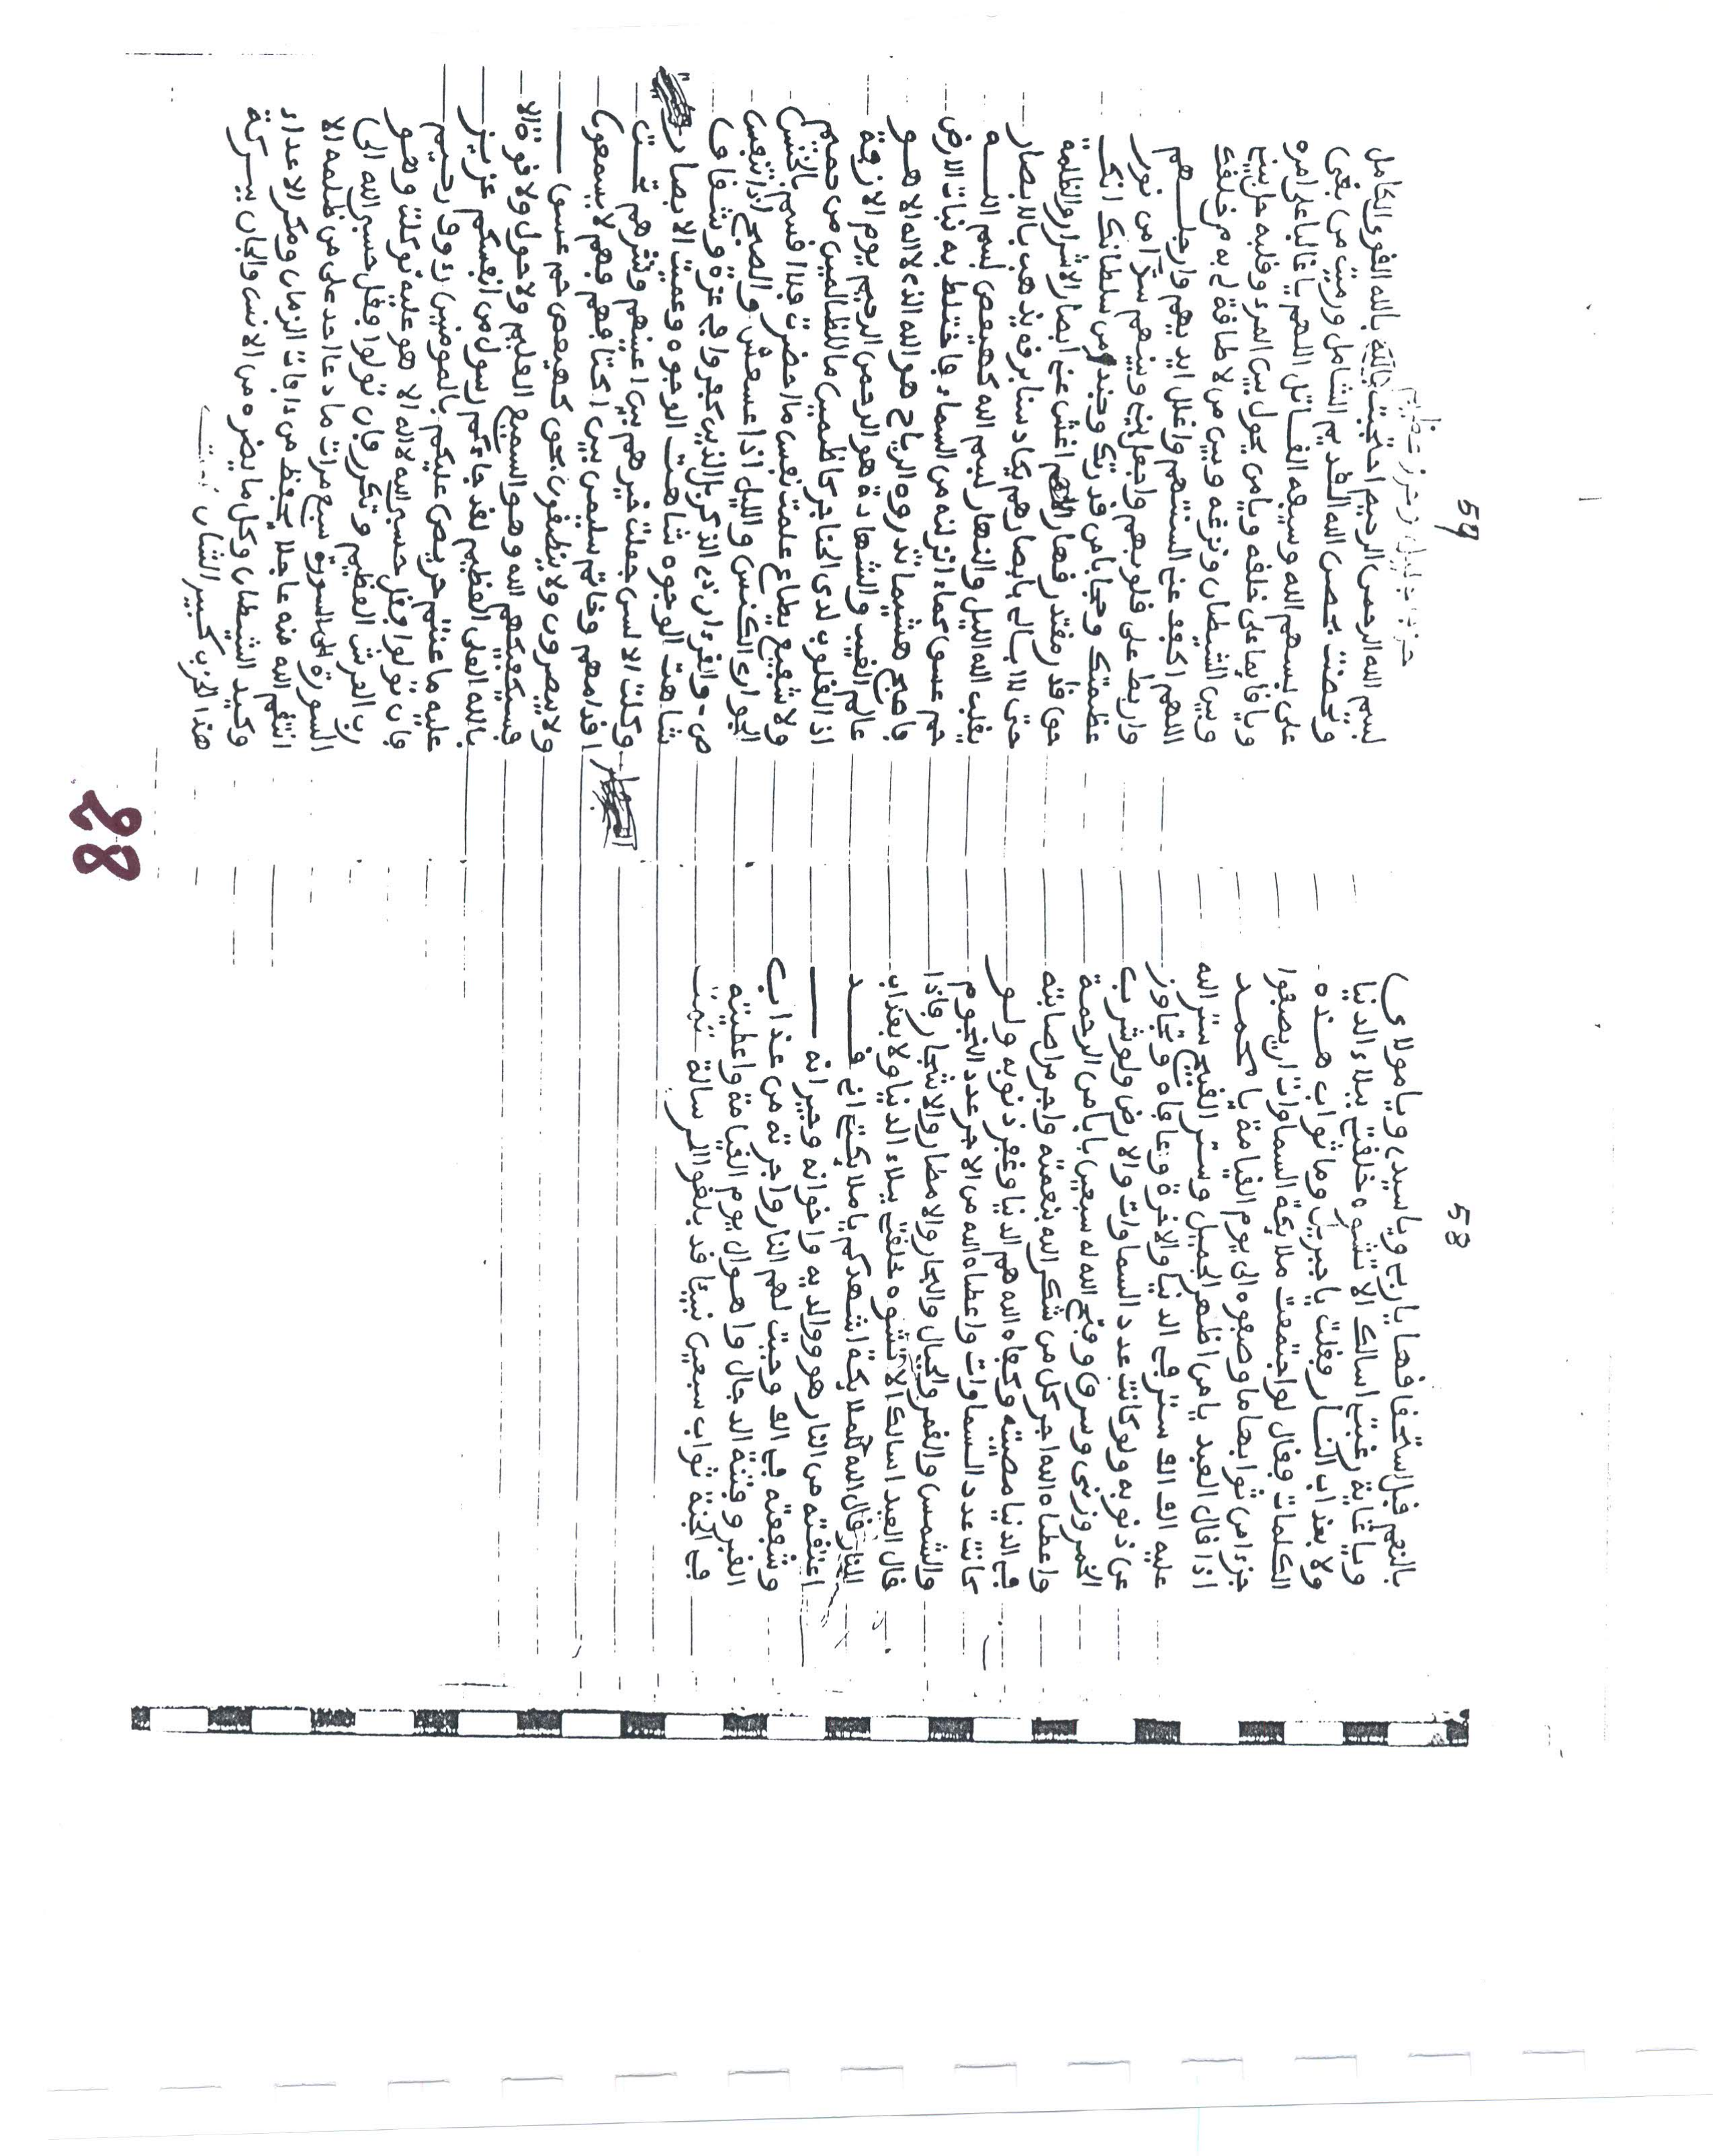 58
بالنعم قبل استحقاقها يا ربي ويا سيدي ويا مولاي
ويا غاية رغبتي اسالك الا تشوه خلقتي ببلاء الدنيا
ولا بعذاب النار فقلت يا جبريل وما ثواب هذه
الكلمات فقال لو اجتمعت ملائكة السماوات ان يصفوا
جزءا من ثوابها ما وصفوه الى يوم القيامة يا محمد
اذا قال العبد يا من اظهر الجميل وستر القبيح ستر الله
عليه الف ستر في الدنيا والاخرة وعافاه وتجاوز
عن ذنوبه ولو كانت عدد السماوات والارض ولو شرب
الخمر وزنى وسرق وفتح الله له سبعين بابا من الرحمة
واعطاه الله اجر كل من شكر الله بنعمته واجر من اصابته
في الدنيا مصيبة وكفاه الله هم الدنيا وغفر ذنوبه ولو
كانت عدد السماوات واعطاه الله من الاجر عدد النجوم
والشمس والقمر والجبال والبحار والامطار والاشجار فاذا
قال العبد اسالك الا تشوه خلقتي ببلاء الدنيا ولا بعذاب
النار قال الله للملائكة اشهدكم يا ملائكتي اني قد
اعتقته من النار هو ووالديه واخوانه وجيرانه
وشفعته في الف وجبت لهم النار واجرته من عذاب
القبر وفتنة الدجال واهوال يوم القيامة واعطيته
في الجنة ثواب سبعين نبيئا قد بلغوا الرسالة تمت
59
حزب جليل وحرز عظيم
بسم الله الرحمن الرحيم احتجبت بالله القوى الكامل
وتحصنت بحصن الله القديم الشامل ورميت من بغى
علي بسهم الله وسيفه القاتل اللهم يا غالبا على امره
ويا قايما على خلقه ويا من يحول بين المرء وقلبه حل بيني
وبين الشيطان ونزغه وبين من لا طاقة لي به من خلقك
اللهم اكفف عني السنتهم واغلل ايديهم وارجلهم
واربط على قلوبهم واجعل بيني وبينهم سترا من نور
عظمتك وحجابا من قدرتك وجند من سلطانك انك
حي قادر مقتدر قهار اللهم اغش عني ابصار الاشرار والظلمة
حتى لا ابالي بابصارهم يكاد سنا برقه يذهب بالابصار
يقلب الله الليل والنهار بسم الله كهيعص بسم الله
حم عسق كماء انزلنه من السماء فاختلط به نبات الارض
فاصبح هشيما تذروه الرياح هو الله الذي لا اله الا هو
عالم الغيب والشهادة هو الرحمن الرحيم يوم الازفة
اذ القلوب لدى الحناجر كاظمين ما للظالمين من حميم
ولا شفيع يطاع علمت نفس ما احضرت فلا اقسم بالخنس
الجوار الكنس والليل اذا عسعس والصبح اذا تنفس
ص والقرءان ذي الذكر بل الذين كفروا في عزة وشقاق
شاهت الوجوه شاهت الوجوه وعميت الابصار
وكلت الالسن جعلت خيرهم بين اعينهم وشرهم تحت
اقدامهم وخاتم سليمن بين اكتافهم فهم لا يسمعون
ولا يبصرون ولا ينطقون بحق كهيعص حم عسق
فسيكفيكهم الله وهو السميع العليم ولا حول ولا قوة الا
بالله العلي العظيم لقد جاءكم رسول من انفسكم عزيز
عليه ما عنتم حريص عليكم بالمومنين رءوف رحيم
فان تولوا فقل حسبي الله لا اله الا هو عليه توكلت وهو
رب العرش العظيم وتكرر فان تولوا فقل حسبي الله الى
السورة الى السورة سبع مرات ما دعا احد على من ظلمه الا
انتقم الله منه عاجلا يحفظ من ءافات الزمان ومكر الاعداء
وكيد الشيطان وكل ما يضره من الانس والجان ببركة
هذا الحزب كبير الشان تمت
28